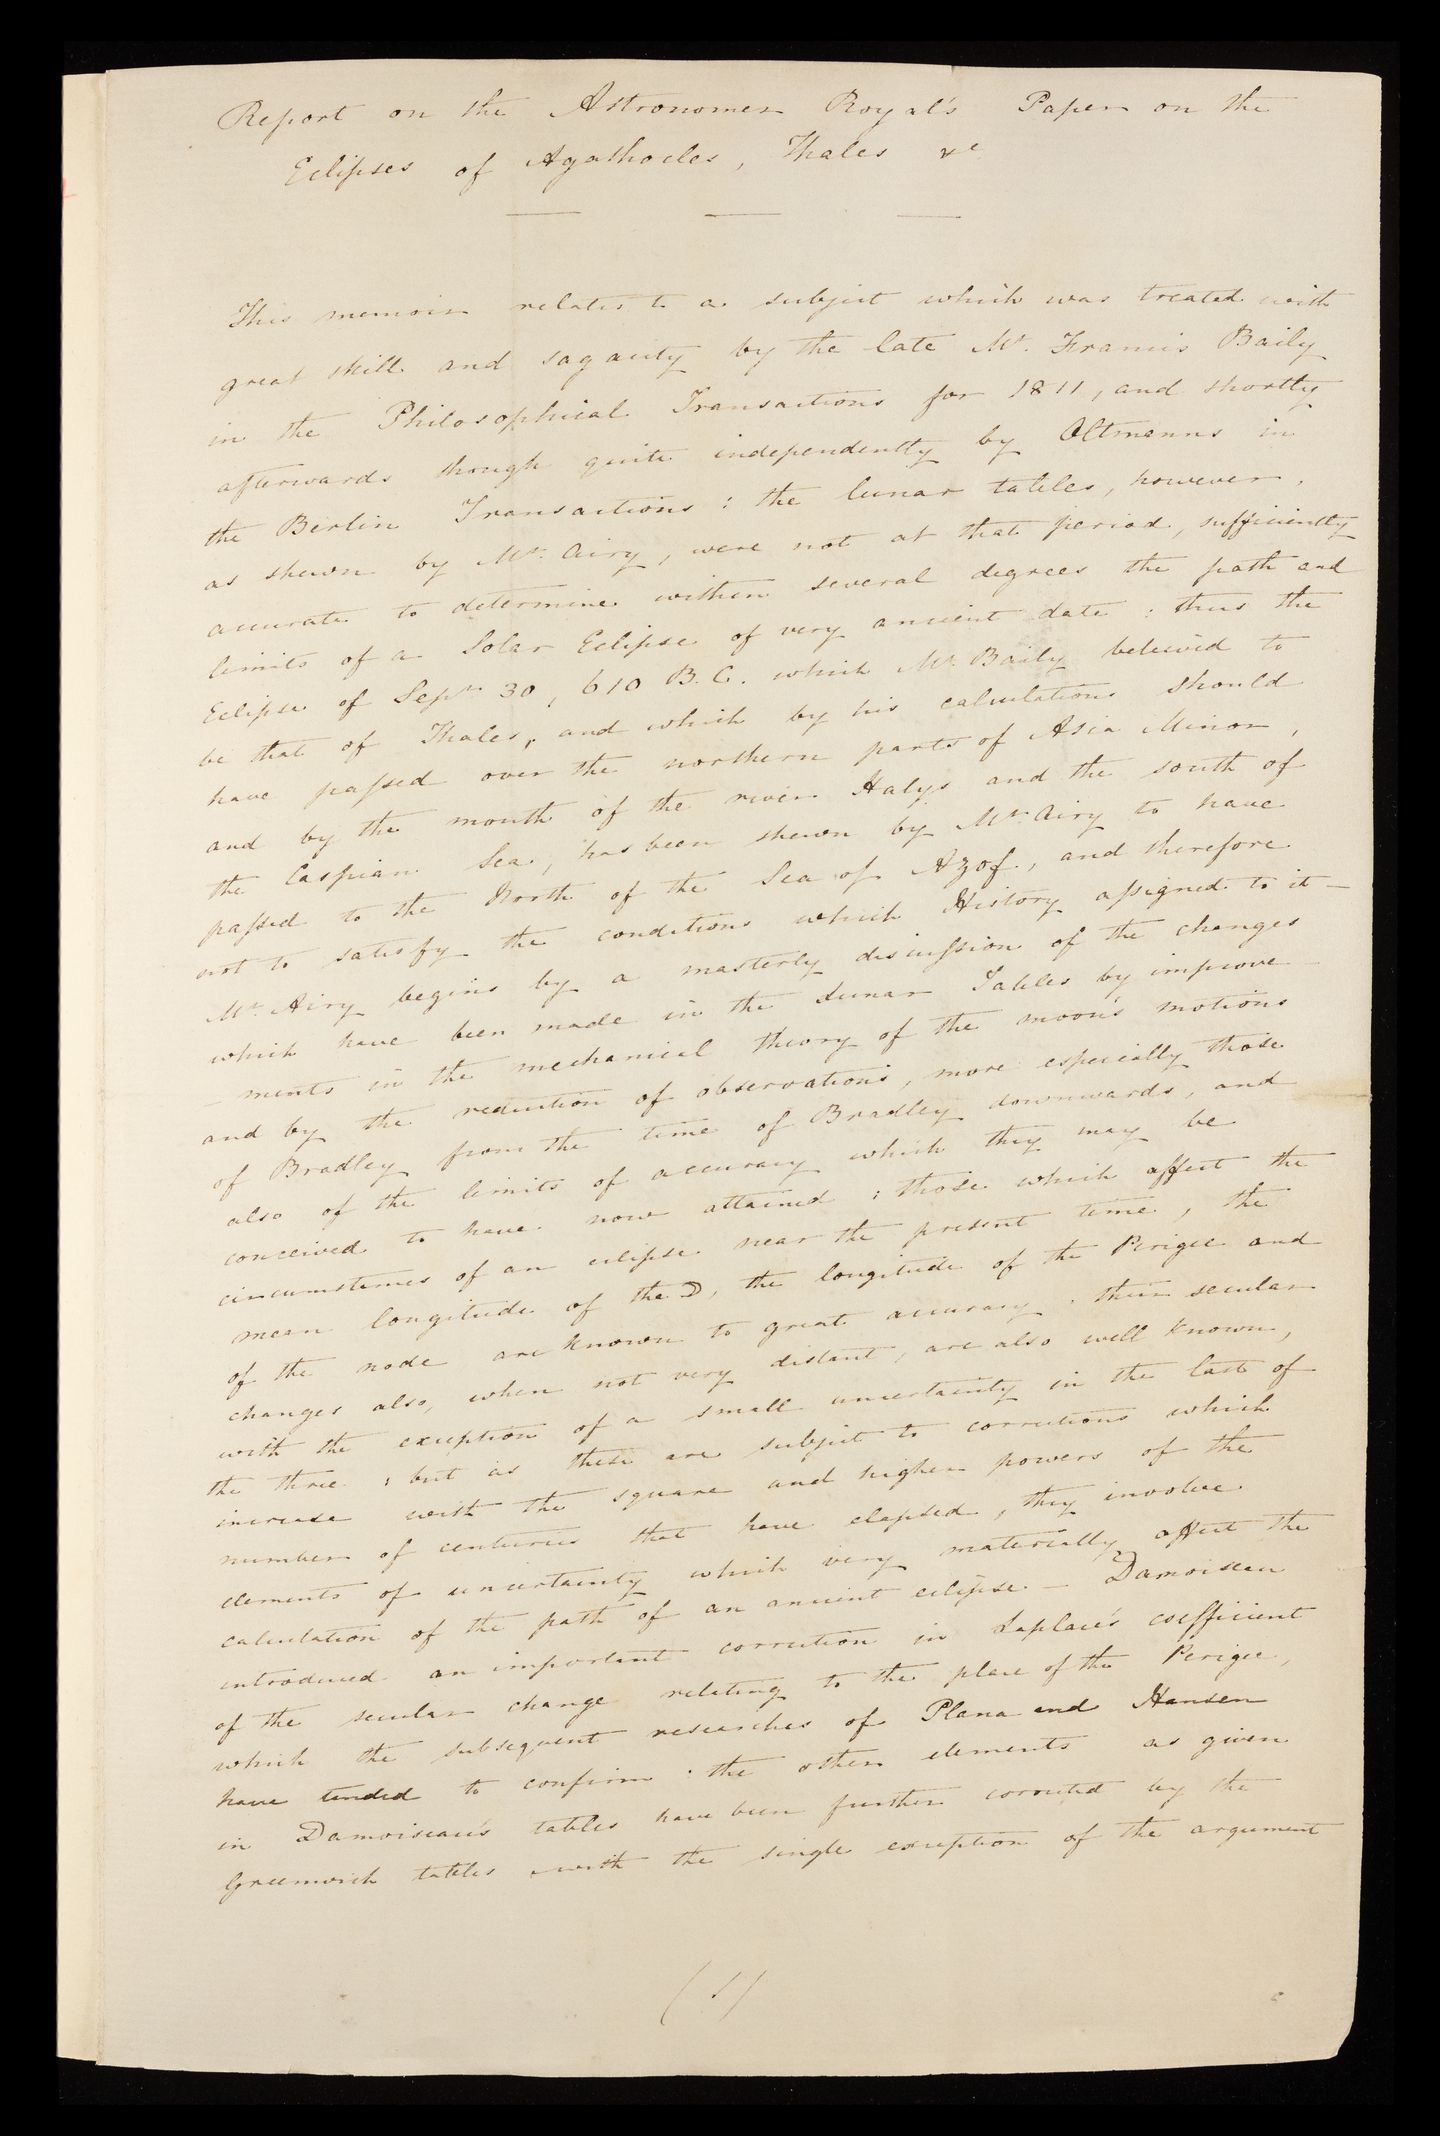 Report on the Astronomer Royal's Paper on the
Eclipses of Agathocles, Thales &c
This memoir relates to a subject which was treated with
great skill and sagacity by the late Mr. Francis Baily
in the Philosophical Transactions for 1811, and shortly
afterwards though quite independently by Oltmanns in
the Berlin Transactions : the lunar tables, however,
as shewn by Mr. Airy, were not at that period, sufficiently
accurate to determine within several degrees the path and
limits of a Solar Eclipse of very ancient date : thus the
Eclipse of Septr 30, 610 B.C. which Mr. Baily beleived to
be that of Thales, and which by his calculations should
have passed over the northern parts of Asia Minor,
and by the mouth of the river Halys and the south of
the Caspian Sea, has been shewn by Mr Airy to have
passed to the North of the Sea of Azof, and therefore
not to satisfy the conditions which History assigned to it —
Mr. Airy begins by a masterly discussion of the changes
which have been made in the Lunar Tables by improve-
-ments in the mechanical theory of the moon's motions
and by the reduction of observations, more especially those
of Bradley from the time of Bradley downwards, and
also of the limits of accuracy which they may be
conceived to have now attained : those which affect the
circumstances of an eclipse near the present time, the
mean longitude of the ☽, the longitude of the Perigee and
of the node are known to great accuracy. their secular
changes also, when not very distant, are also well known,
with the exception of a small uncertainty in the last of
the three : but as these are subject to corrections which
increase with the square and higher powers of the
number of centuries that have elapsed, they involve
elements of uncertainty which very materially affect the
calculation of the path of an ancient eclipse — Damoiseau
introduced an important correction in Laplace's coefficient
of the secular change relating to the place of the Perigee,
which the subsequent researches of Plana and Hansen
have tended to confirm : the other elements as given
in Damoiseau's tables have been further corrected by the
Greenwich tables with the single exception of the argument
(1)